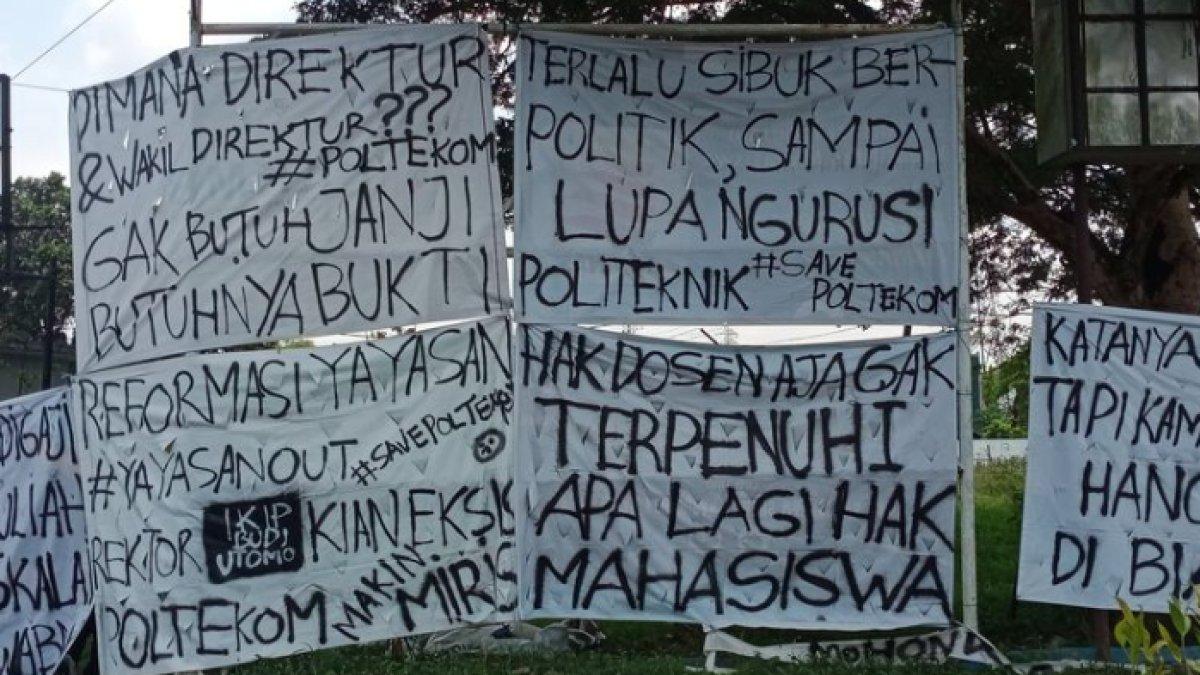 DIMANA DIREKTUR
& WAKIL DIREKTUR ???
#POLTEKOM
GAK BUTUH JANJI
BUTUHNYA BUKTI
TERLALU SIBUK BER-
POLITIK, SAMPAI
LUPA NGURUSI
POLITEKNIK #SAVE
POLTEKOM
REFORMASI YAYASAN
#YAYASANOUT #SAVEPOLTEKO
REKTOR IKIP
BUDI
UTOMO KIAN EKSIS
POLTEKOM MAKIN MIRIS
HAK DOSEN AJA GAK
TERPENUHI
APA LAGI HAK
MAHASISWA
KATANYA
TAPI KAM
HANC
DI BI
DIGAJI
ULIAH
SKALA
MOHON